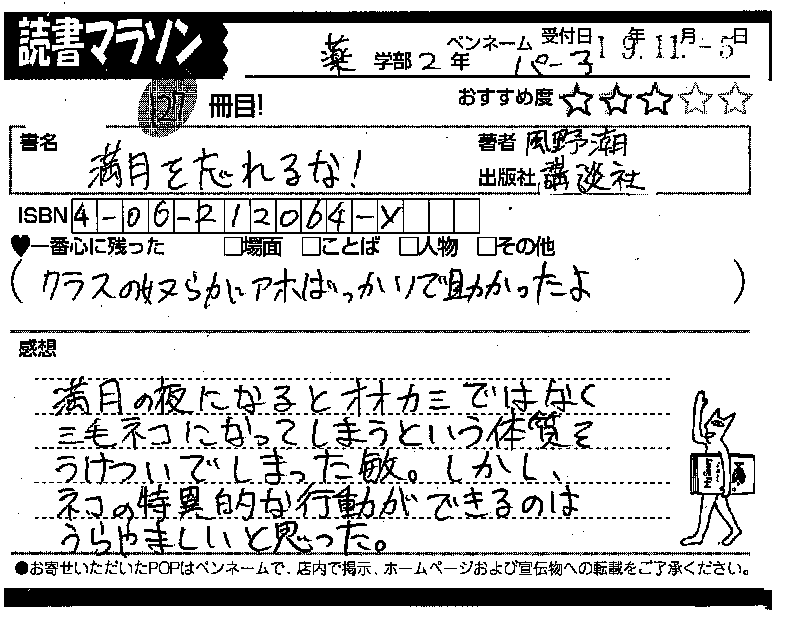 読書マラソン
薬 学部 2 年 ペンネーム パー子 受付日 19年11月-5日
127 冊目! おすすめ度 ★★★☆☆
書名 満月を忘れるな! 著者 風野潮
出版社 講談社
ISBN 4-06-212064-X
♥一番心に残った □場面 □ことば □人物 □その他
(クラスの奴らがアホばっかりで助かったよ)
感想
満月の夜になるとオオカミではなく
三毛ネコになってしまうという体質を
うけついでしまった敏。しかし、
ネコの特異的な行動ができるのは
うらやましいと思った。
●お寄せいただいたPOPはペンネームで、店内で掲示、ホームページおよび宣伝物への転載をご了承ください。